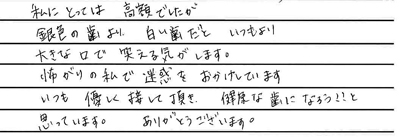 私にとっては 高額でしたが
銀色の歯より 白い歯だと いつもより
大きな口で 笑える気がします。
怖がりの私で 迷惑を おかけしています
いつも 優しく 接して頂き 健康な歯になろう!!と
思っています。 ありがとうございます。